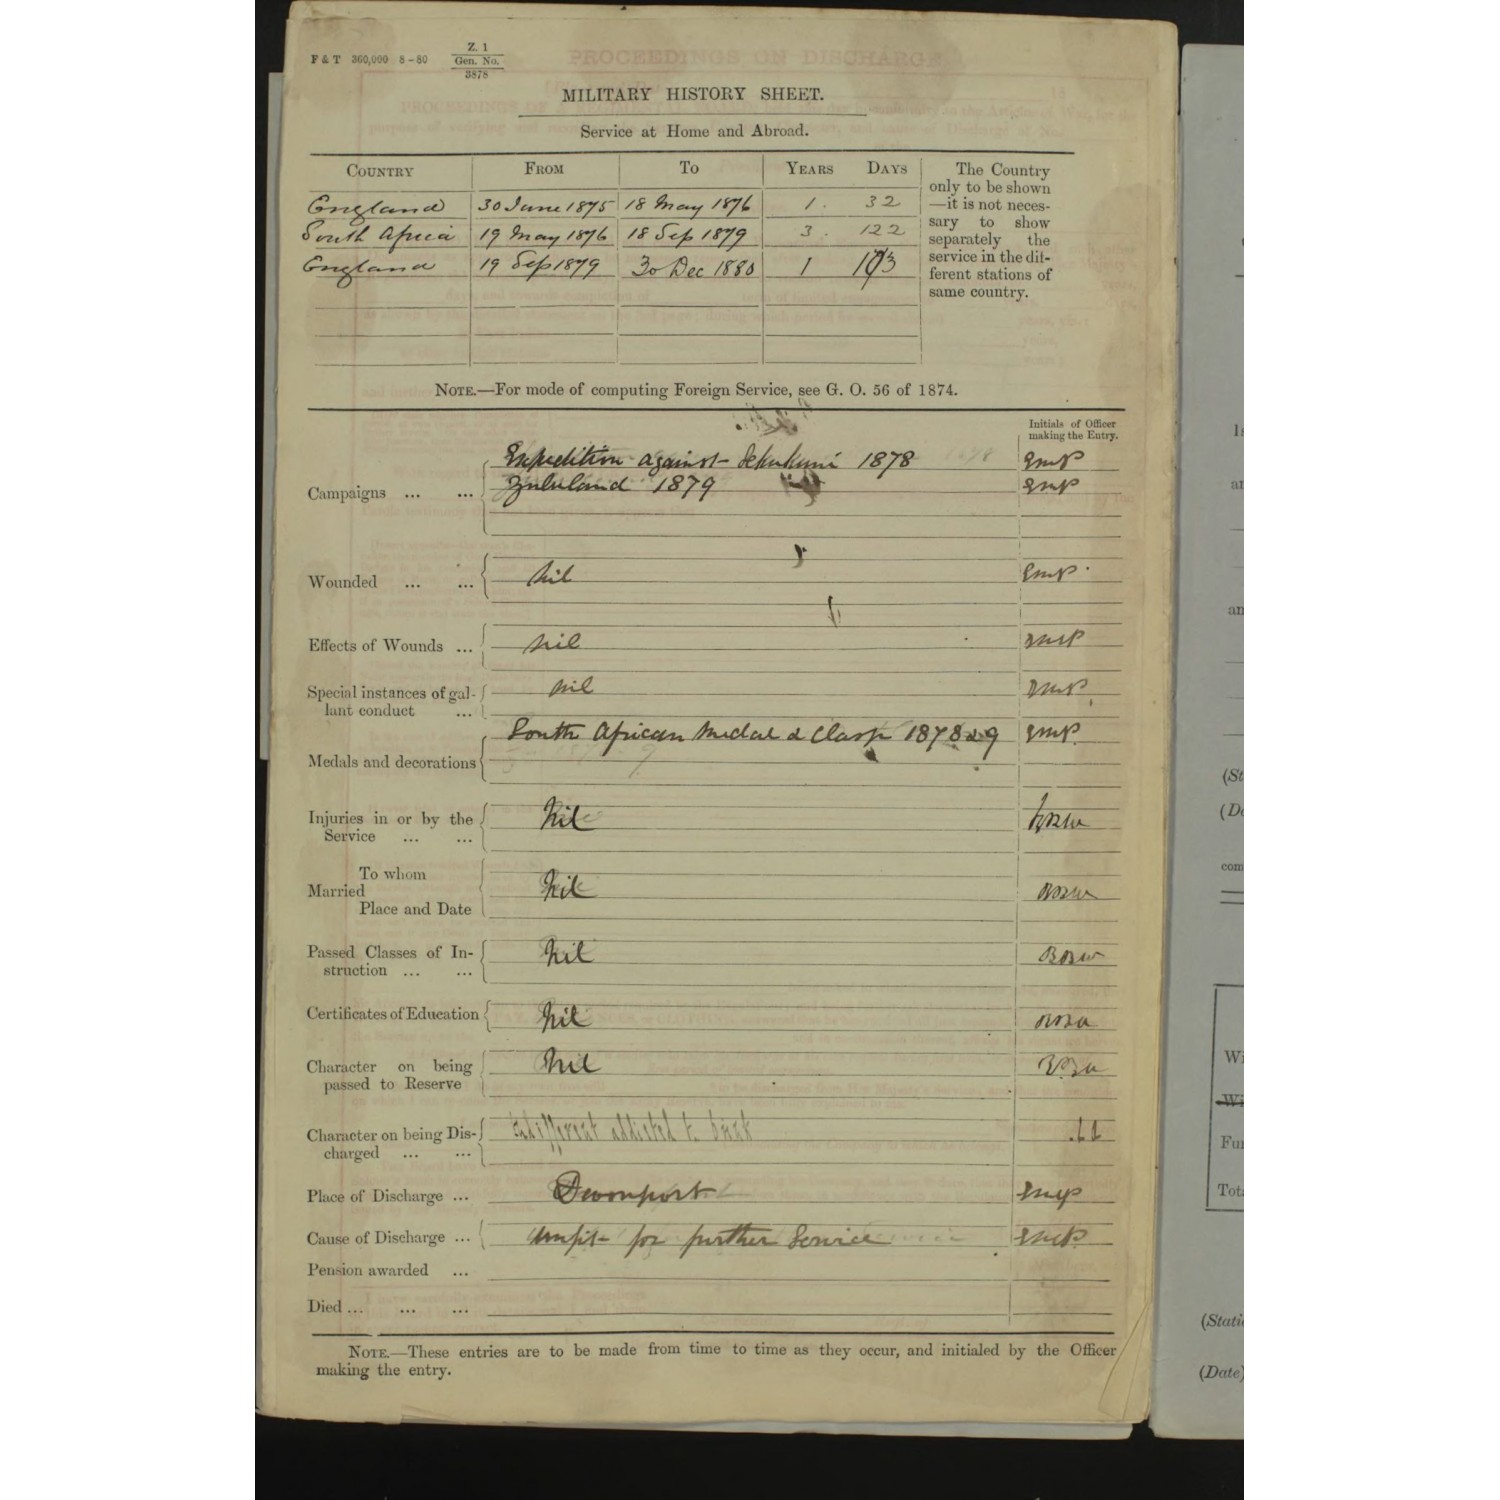 F & T 360,000 8-80 Z. 1
Gen. No.
3878
MILITARY HISTORY SHEET.
Service at Home and Abroad.
COUNTRY FROM TO YEARS DAYS
England 30 June 1875 18 May 1876 1. 32
South Africa 19 May 1876 18 Sep 1879 3. 122
England 19 Sep 1879 30 Dec 1880 1
The Country
only to be shown
—it is not neces-
sary to show
separately the
service in the dif-
ferent stations of
same country.
NOTE.—For mode of computing Foreign Service, see G. O. 56 of 1874.
Initials of Officer
making the Entry.
Campaigns ... ...
Expedition against Sekukuni 1878
Zululand 1879
Wounded ... ... Nil
Effects of Wounds ... Nil
Special instances of gal-
lant conduct ... Nil
Medals and decorations South African Medal & Clasp 1878 & 9
Injuries in or by the
Service ... ... Nil
To whom
Married Nil
Place and Date
Passed Classes of In-
struction ... ... Nil
Certificates of Education Nil
Character on being
passed to Reserve Nil
Character on being Dis-
charged ... ... Indifferent addicted to drink
Place of Discharge ... Devonport
Cause of Discharge ... Unfit for further Service
Pension awarded ...
Died ... ... ...
NOTE.—These entries are to be made from time to time as they occur, and initialed by the Officer
making the entry.